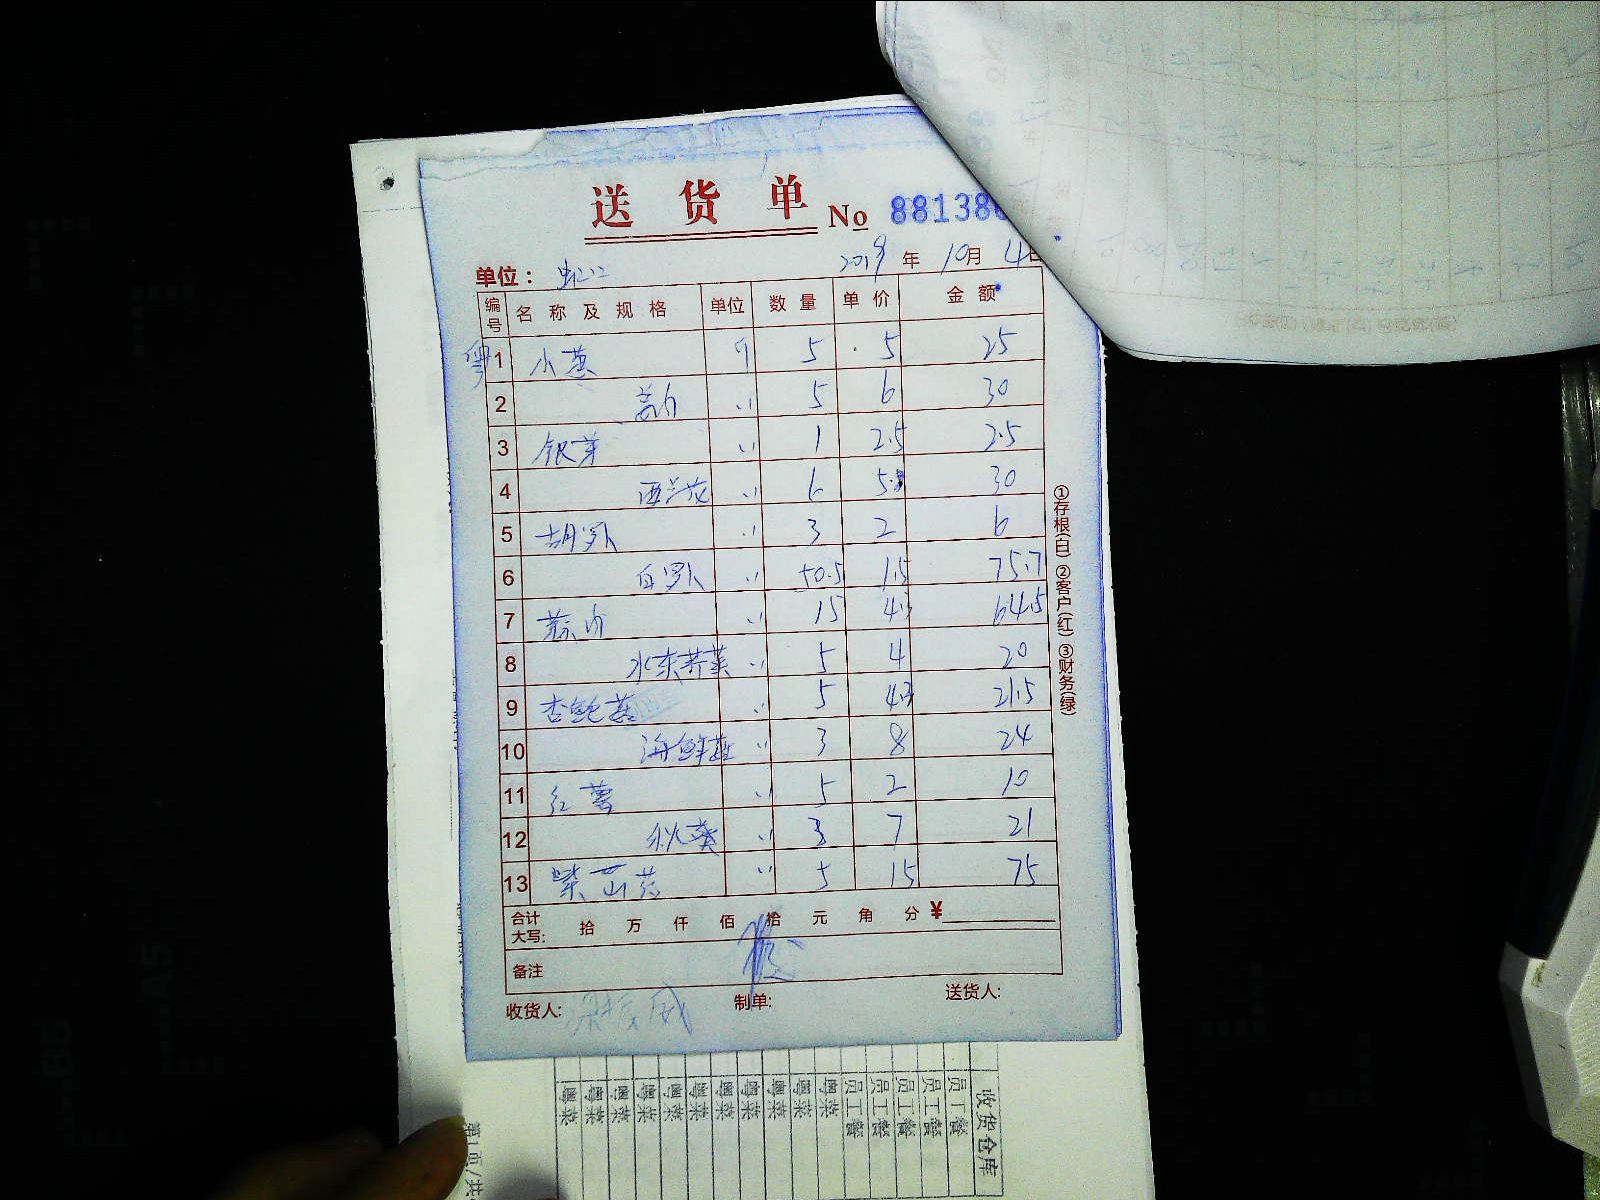 送货单 No 88138
单位: 虹江 2019年10月4日
编号 名称及规格 单位 数量 单价 金额
粤 1 小葱 斤 5 5 25
2 〃 5 6 30
3 银芽 〃 1 2.5 2.5
4 西兰花 〃 6 5 30
5 胡罗卜 〃 3 2 6
6 白罗卜 〃 50.5 1.5 75.7
7 蒜 〃 15 4.3 64.5
8 水东芥菜 〃 5 4 20
9 杏鲍菇 〃 5 4.3 21.5
10 海鲜菇 〃 3 8 24
11 红薯 〃 5 2 10
12 秋葵 〃 3 7 21
13 紫山药 〃 5 15 75
合计大写: 拾 万 仟 佰 拾 元 角 分 ¥
备注
收货人: 制单: 送货人:
①存根(白) ②客户(红) ③财务(绿)
收货仓库
员工餐
员工餐
员工餐
员工餐
员工餐
粤菜
粤菜
粤菜
粤菜
粤菜
粤菜
粤菜
粤菜
粤菜
粤菜
第1页/共